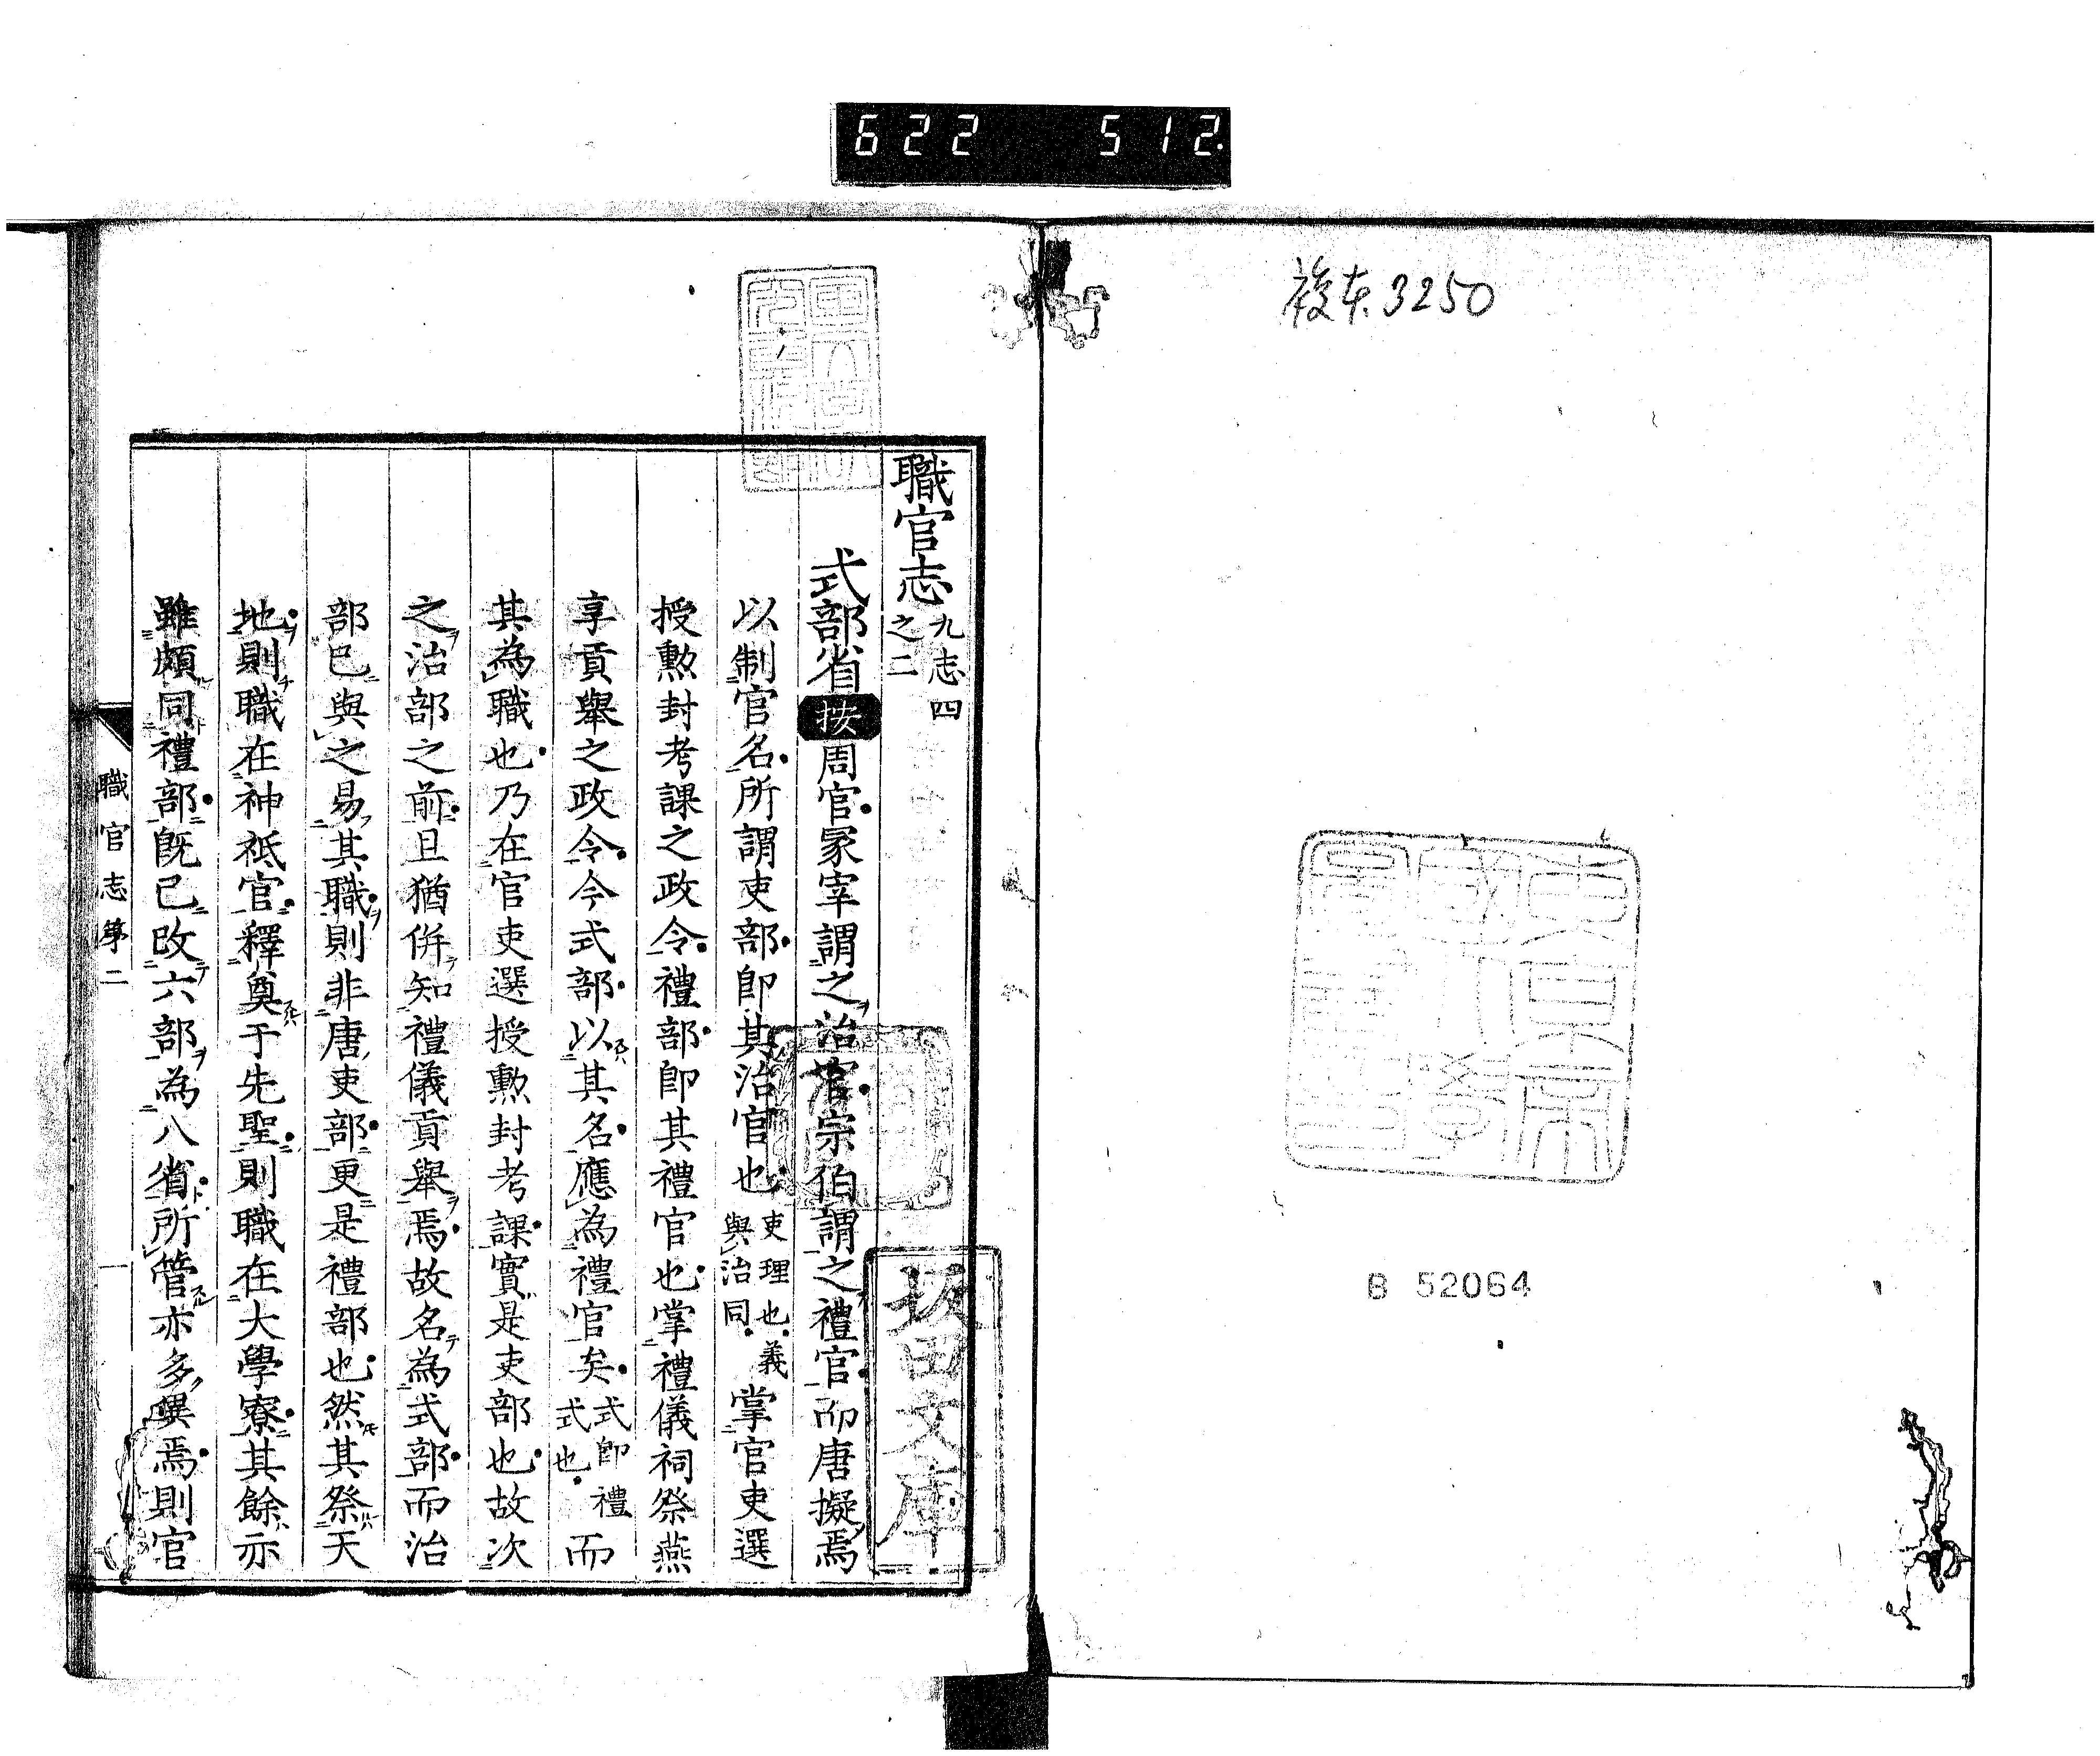 622 512.
複本3250
東京帝國大學圖書印
B 52064
職官志 九志四之二
式部省 按 周官冢宰謂之治官宗伯謂之禮官而唐擬焉
以制官名所謂吏部即其治官也 吏理也義與治同 掌官吏選
授勲封考課之政令禮部即其禮官也掌禮儀祠祭燕
享貢舉之政令今式部以其名應為禮官矣 式即禮式也 而
其為職也乃在官吏選授勲封考課實是吏部也故次
之治部之前且猶併知禮儀貢舉焉故名為式部而治
部已與之易其職則非唐吏部更是禮部也然其祭天
地則職在神祇官釋奠于先聖則職在大學寮其餘亦
雖頗同禮部既已改六部為八省所管亦多異焉則官
職官志第二 一
坂田文庫